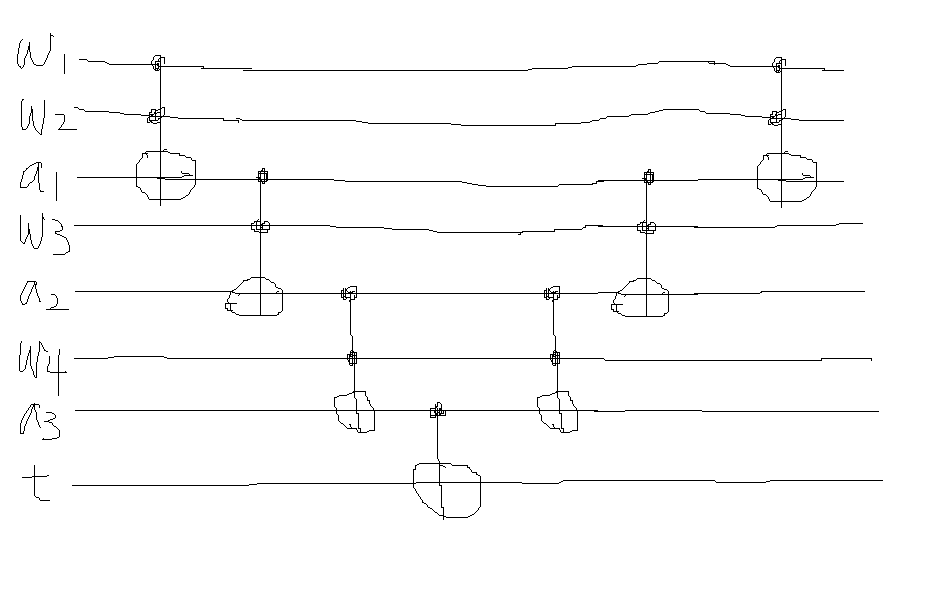 w1
w2
a1
w3
a2
w4
a3
t